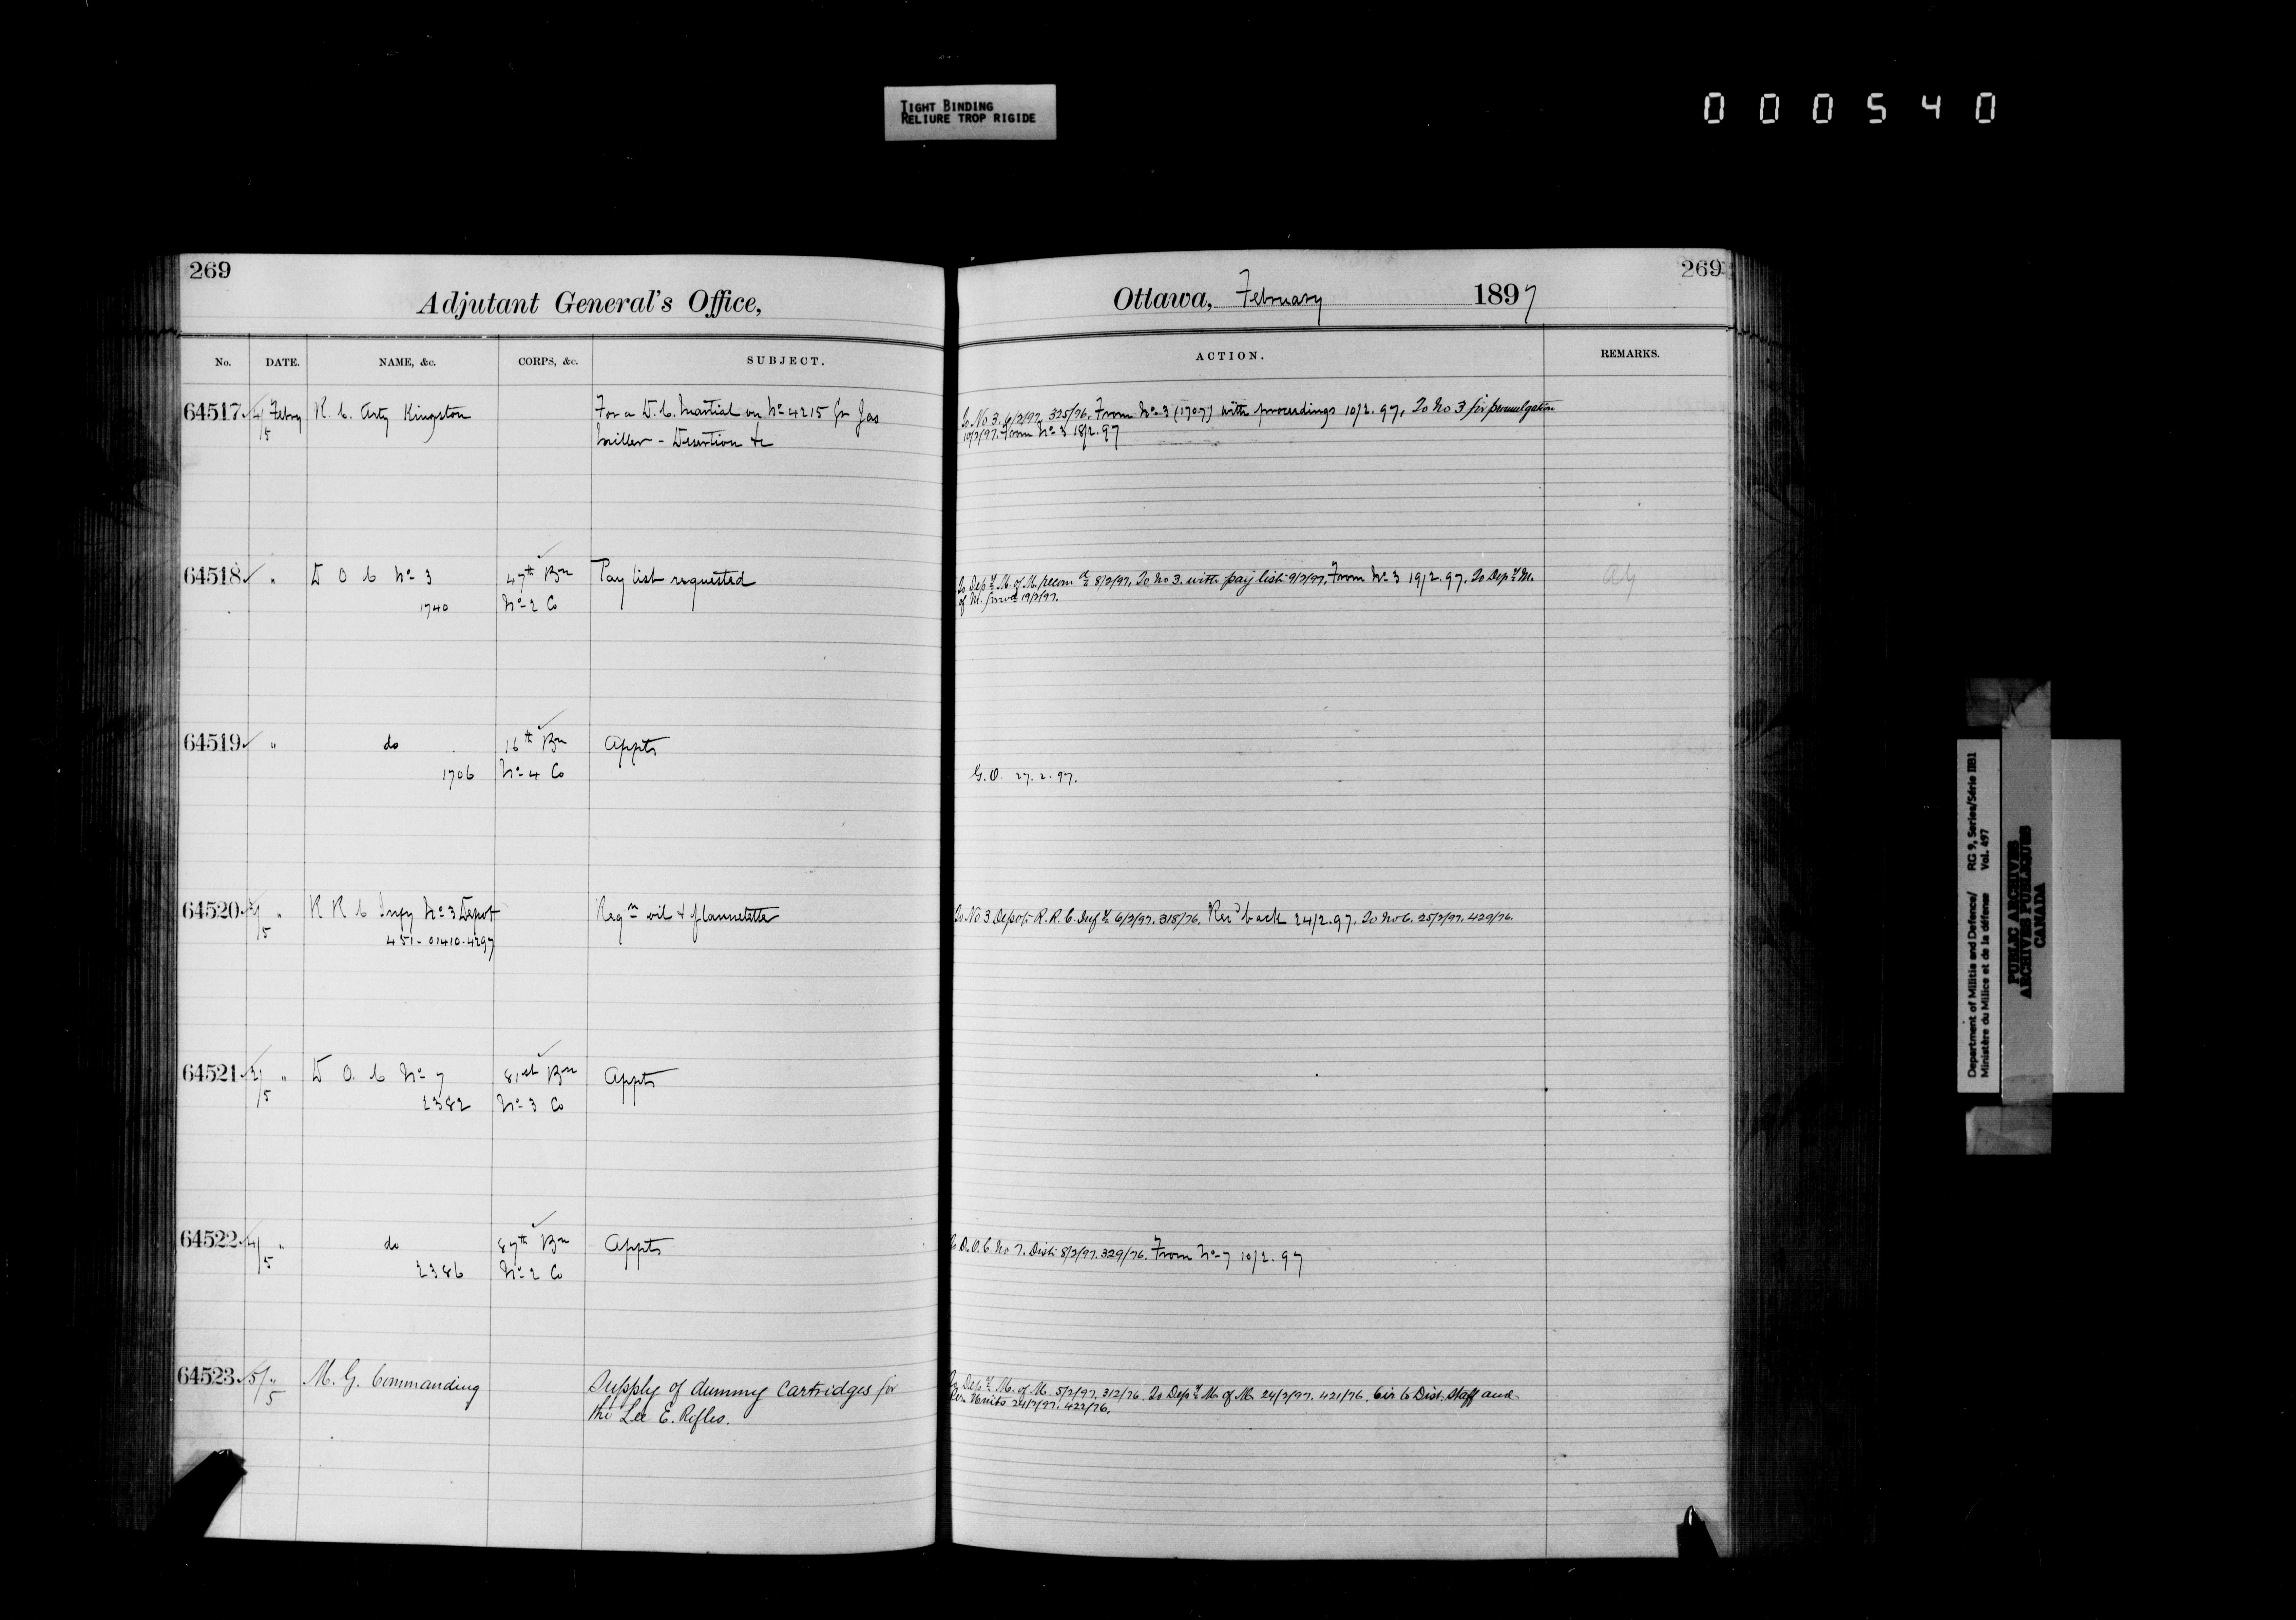 TIGHT BINDING
RELIURE TROP RIGIDE
000540
269
Adjutant General's Office,
No. DATE. NAME, &c. CORPS, &c. SUBJECT.
64517 4/5 Febry R. C. Arty Kingston For a D. C. Martial on No 4215 Gr Jas
Miller - Desertion &c
64518 " D O C No 3 47th Bn Pay list requested
1740 No 2 Co
64519 " do 16th Bn Appts
1706 No 4 Co
64520 /5 " R R C Infy No 3 Depot Reqn oil & flannelette
451-01410-4297
64521 2/5 " D. O. C No 7 81st Bn Appts
2382 No 3 Co
64522 4/5 " do 87th Bn Appts
2386 No 2 Co
64523 5/5 " M. G. Commanding Supply of dummy Cartridges for
the Lee E. Rifles.
269
Ottawa, February 1897
ACTION. REMARKS.
To No 3. 6/2/97. 325/76. From No 3 (1707) with proceedings 10/2.97, To No 3 for promulgation
10/2/97. From No 3 18/2.97
To Depy M. of M. recom 8/2/97. To No 3. with pay list 9/2/97. From No 3 19/2.97. To Depy M.
of M. 19/2/97.
G.O. 27.2.97.
To No 3 Depot R.R.C. Infy 6/2/97. 318/76. Recd back 24/2.97. To No 6. 25/2/97. 429/76.
To D.O.C. No 7. Dist 8/2/97. 329/76. From No 7 10/2.97
To Depy M. of M. 5/2/97. 312/76. To Depy M. of M. 24/2/97. 421/76. Cir to Dist. Staff and
Units 24/2/97. 422/76.
Department of Militia and Defence/ RG 9, Series/Série IIB1
Ministère du Milice et de la défense Vol. 497
PUBLIC ARCHIVES
ARCHIVES PUBLIQUES
CANADA